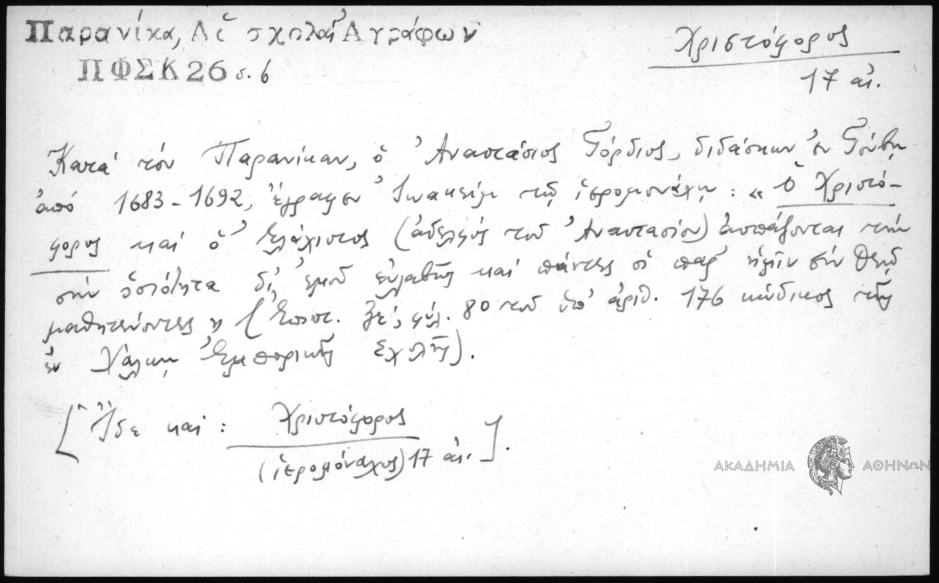 Παρανίκα, Αἱ σχολαὶ Ἀγράφων
ΠΦΣΚ 26 σ. 6
Χριστόφορος
17 αἰ.
Κατὰ τὸν Παρανίκαν, ὁ Ἀναστάσιος Γόρδιος, διδάσκων ἐν
ἀπό 1683-1692, ἔγραφεν Ἰωακεὶμ τῷ ἱερομονάχῳ: « ὁ Χριστό-
φορος καὶ ὁ ἐλάχιστος (ἀδελφός τοῦ Ἀναστασίου) ἀσπάζονται τὴν
σὴν ὁσιότητα δι' ἐμοῦ εὐλαβῶς καὶ πάντες οἱ παρ' ἡμῖν σὺν θεῷ
μαθητεύοντες » (Ἐπιστ. ξε', φύλ. 80 τοῦ ὑπ' ἀριθ. 176 κώδικος τῆς
ἐν Χάλκῃ Ἐμπορικῆς Σχολῆς).
[Ἴδε καὶ: Χριστόφορος
(ἱερομόναχος) 17 αἰ.].
ΑΚΑΔΗΜΙΑ ΑΘΗΝΩΝ